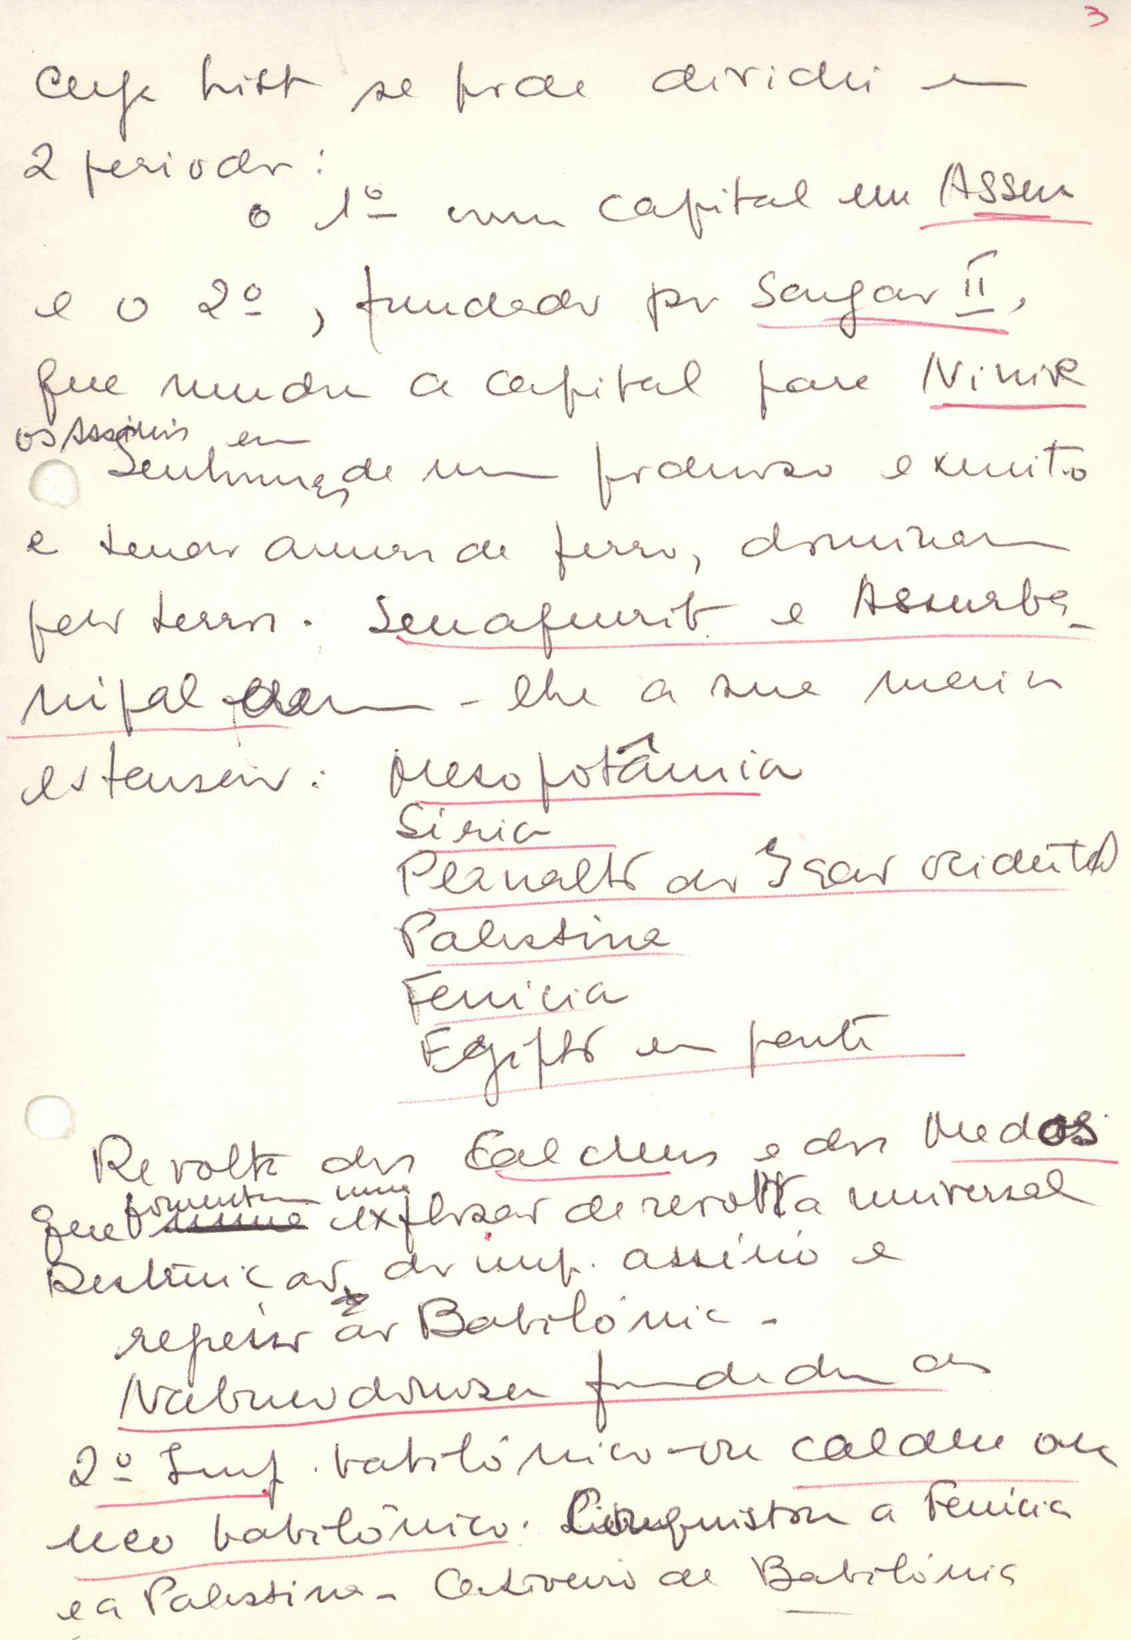 3
cuja hist se pode dividir em
2 periodos:
o 1º com capital em Assur
e o 2º, fundado por Sargão II,
que mudou a capital para Ninive
os Assírios em
de um poderoso exercito
e tendo armas de ferro, dominam
pelo terror. Senaquerib e Assurba-
nipal deram-lhe a sua maior
estensão: Mesopotâmia
Siria
Planalto do Irão ocidental
Palestina
Fenicia
Egipto em parte
Revolta dos Caldeus e dos Medos
fomentam uma
que explosão de revolta universal
Destruição do imp. assírio e
regresso à Babilónia -
Nabucodonosor fundador do
2º Imp. babilónico - ou caldeu ou
neo babilónico. Conquistou a Fenícia
e a Palestina - Cativeiro de Babilónia